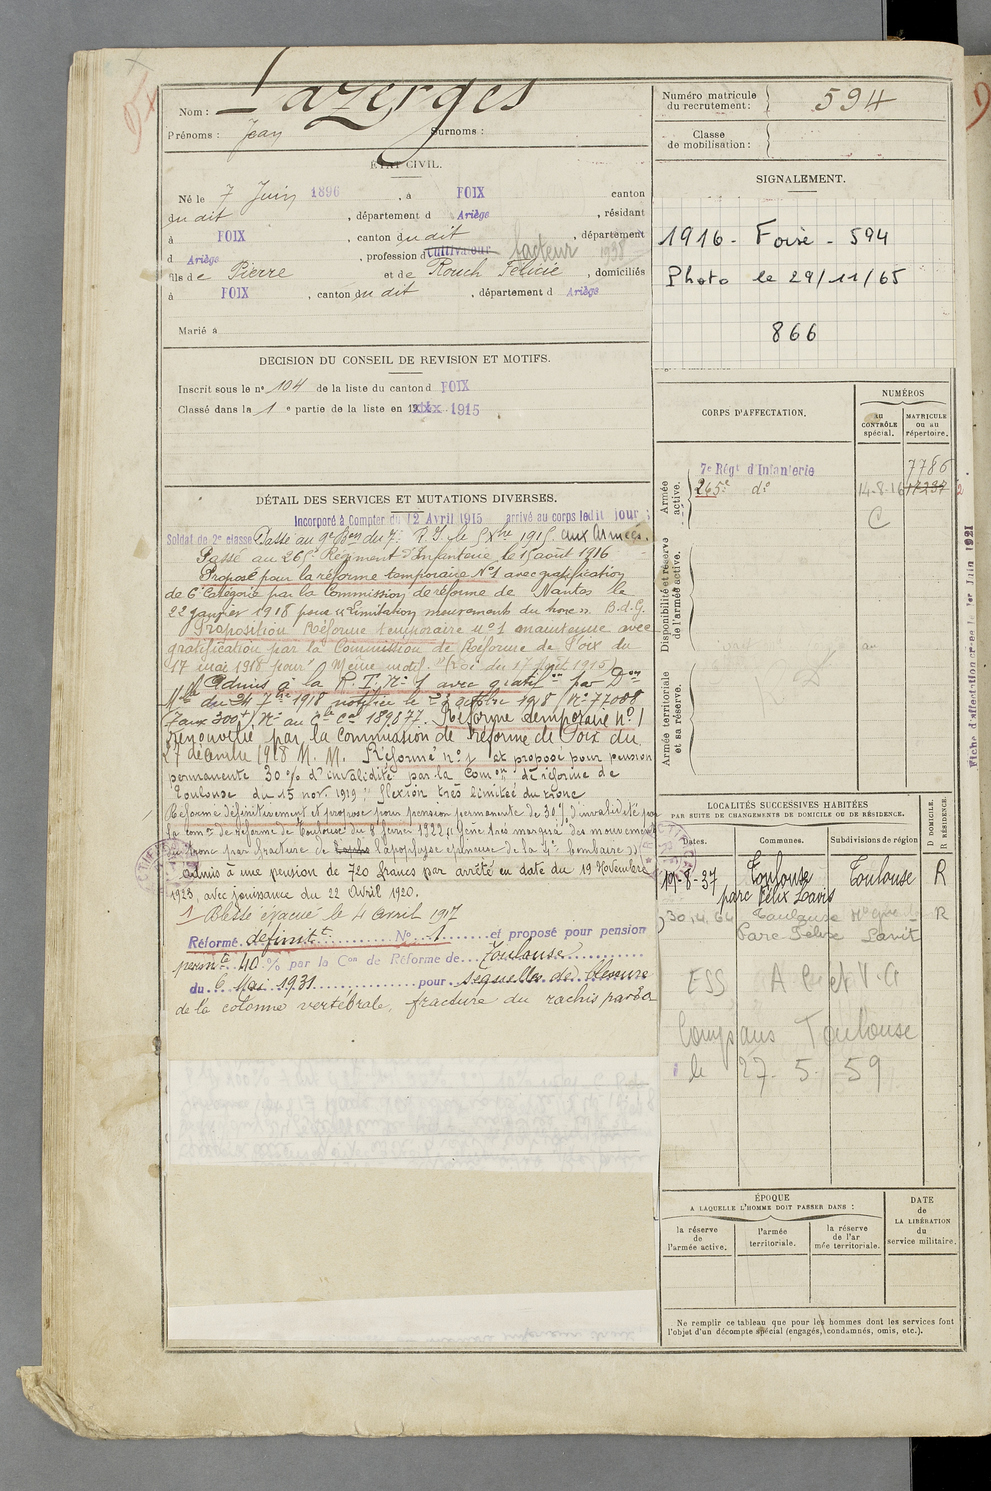 Nom : Lazerges
Prénoms : Jean Surnoms :
ÉTAT CIVIL.
Né le 7 Juin 1896, à FOIX canton
du dit, département d Ariège, résidant
à FOIX, canton du dit, département
d Ariège, profession d Cultivateur facteur 1938
fils de Pierre et de Rouch Félicie, domiciliés
à FOIX, canton du dit, département d Ariège
Marié à
DECISION DU CONSEIL DE REVISION ET MOTIFS.
Inscrit sous le n° 104 de la liste du canton d FOIX
Classé dans la 1e partie de la liste en 1915
DÉTAIL DES SERVICES ET MUTATIONS DIVERSES.
Incorporé à Compter du 12 Avril 1915 arrivé au corps ledit jour ;
Soldat de 2e classe Passé au 9e Bon du 7e R. I. le 5 Xbre 1915. aux Armées.
Passé au 265e Régiment d'Infanterie le 15 août 1916
Proposé pour la réforme temporaire N°1 avec gratification
de 6e Catégorie par la Commission de réforme de Nantes le
22 janvier 1918 pour "Limitation mouvement du tronc". B.d.G.
Proposition Réforme temporaire n° 1 maintenue avec
gratification par la Commission de Réforme de Foix du
17 mai 1918 pour "Même motif." (Loi du 17 août 1915)
Admis à la R. T. N° 1 avec gratifon par Don
Mlle du 24 7bre 1918 notifiée le 23 octobre 1918 (N° 77088
(Taux 300f) N° au Cle Cal 189877. Réforme temporaire n° 1
renouvelée par la Commission de Réforme de Foix du
27 décembre 1918 M. M. Réformé n° 1 et proposé pour pension
permanente 30 % d'invalidité par la Comon de réforme de
Toulouse du 15 nov. 1919 "flexion très limitée du tronc
Réformé définitivement et proposé pour pension permanente de 30 % d'invalidité par
la Comon de Réforme de Toulouse du 8 février 1922 "Gêne très marquée des mouvements
du tronc par fracture de l'apophyse épineuse de la 4e lombaire"
Admis à une pension de 720 francs par arrêté en date du 19 Novembre
1923, avec jouissance du 22 Avril 1920.
1 Blessé évacué le 4 avril 1917
Réformé définitt N° 1 et proposé pour pension
permte 40 % par la Con de Réforme de Toulouse
du 6 Mai 1931 pour séquelles de blessure
de la colonne vertébrale, fracture du rachis par
Numéro matricule du recrutement : 594
Classe de mobilisation :
SIGNALEMENT.
1916 - Foix - 594
Photo le 29/11/65
866
CORPS D'AFFECTATION.
NUMÉROS
AU CONTRÔLE spécial.
MATRICULE ou au répertoire.
Armée active.
7e Régt d'Infanterie 7786
265e d° 14.8.16 17237
C
Disponibilité et réserve de l'armée active.
Armée territoriale et sa réserve.
Fiche d'affectation créée le 1er Juin 1921
LOCALITÉS SUCCESSIVES HABITÉES
PAR SUITE DE CHANGEMENTS DE DOMICILE OU DE RÉSIDENCE.
Dates. Communes. Subdivisions de région
D DOMICILE. R RÉSIDENCE.
19-8-37 Toulouse Toulouse R
parc Félix Lavit
30.4.64 Toulouse R
Parc Félix Lavit
ESS A C et V. G
Compans Toulouse
le 27-5-59
ÉPOQUE
A LAQUELLE L'HOMME DOIT PASSER DANS :
la réserve de l'armée active.
l'armée territoriale.
la réserve de l'armée territoriale.
DATE de LA LIBÉRATION du service militaire.
Ne remplir ce tableau que pour les hommes dont les services font
l'objet d'un décompte spécial (engagés, condamnés, omis, etc.).